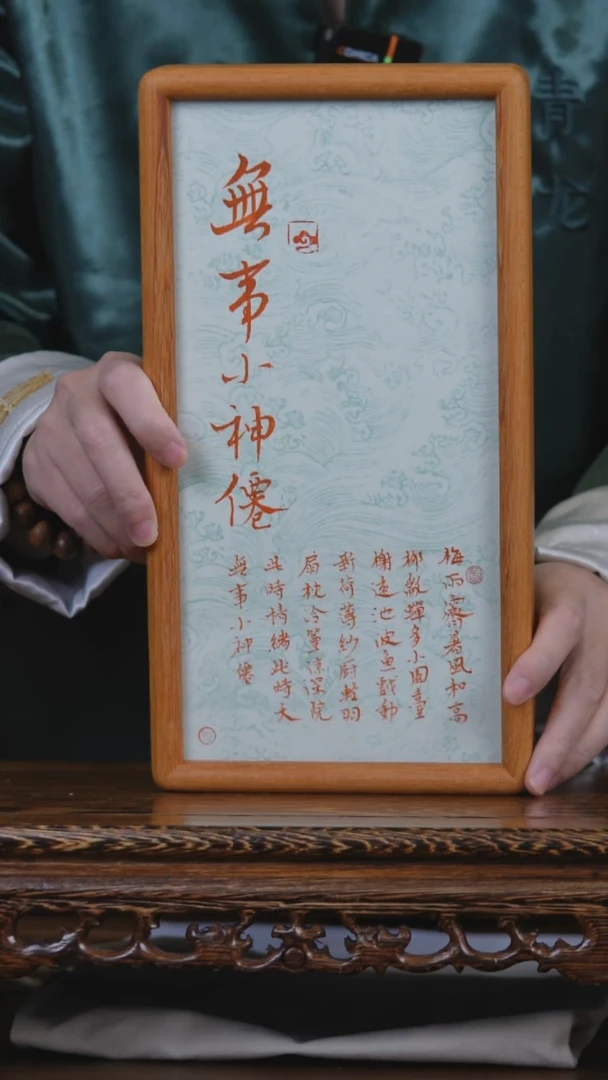 無事小神僊
梅雨霽暑風和高
柳亂蟬多小園臺
榭遠池波魚戲動
新荷薄紗厨輕羽
扇枕冷簟涼深院
此時情緒此時天
無事小神僊
青龙